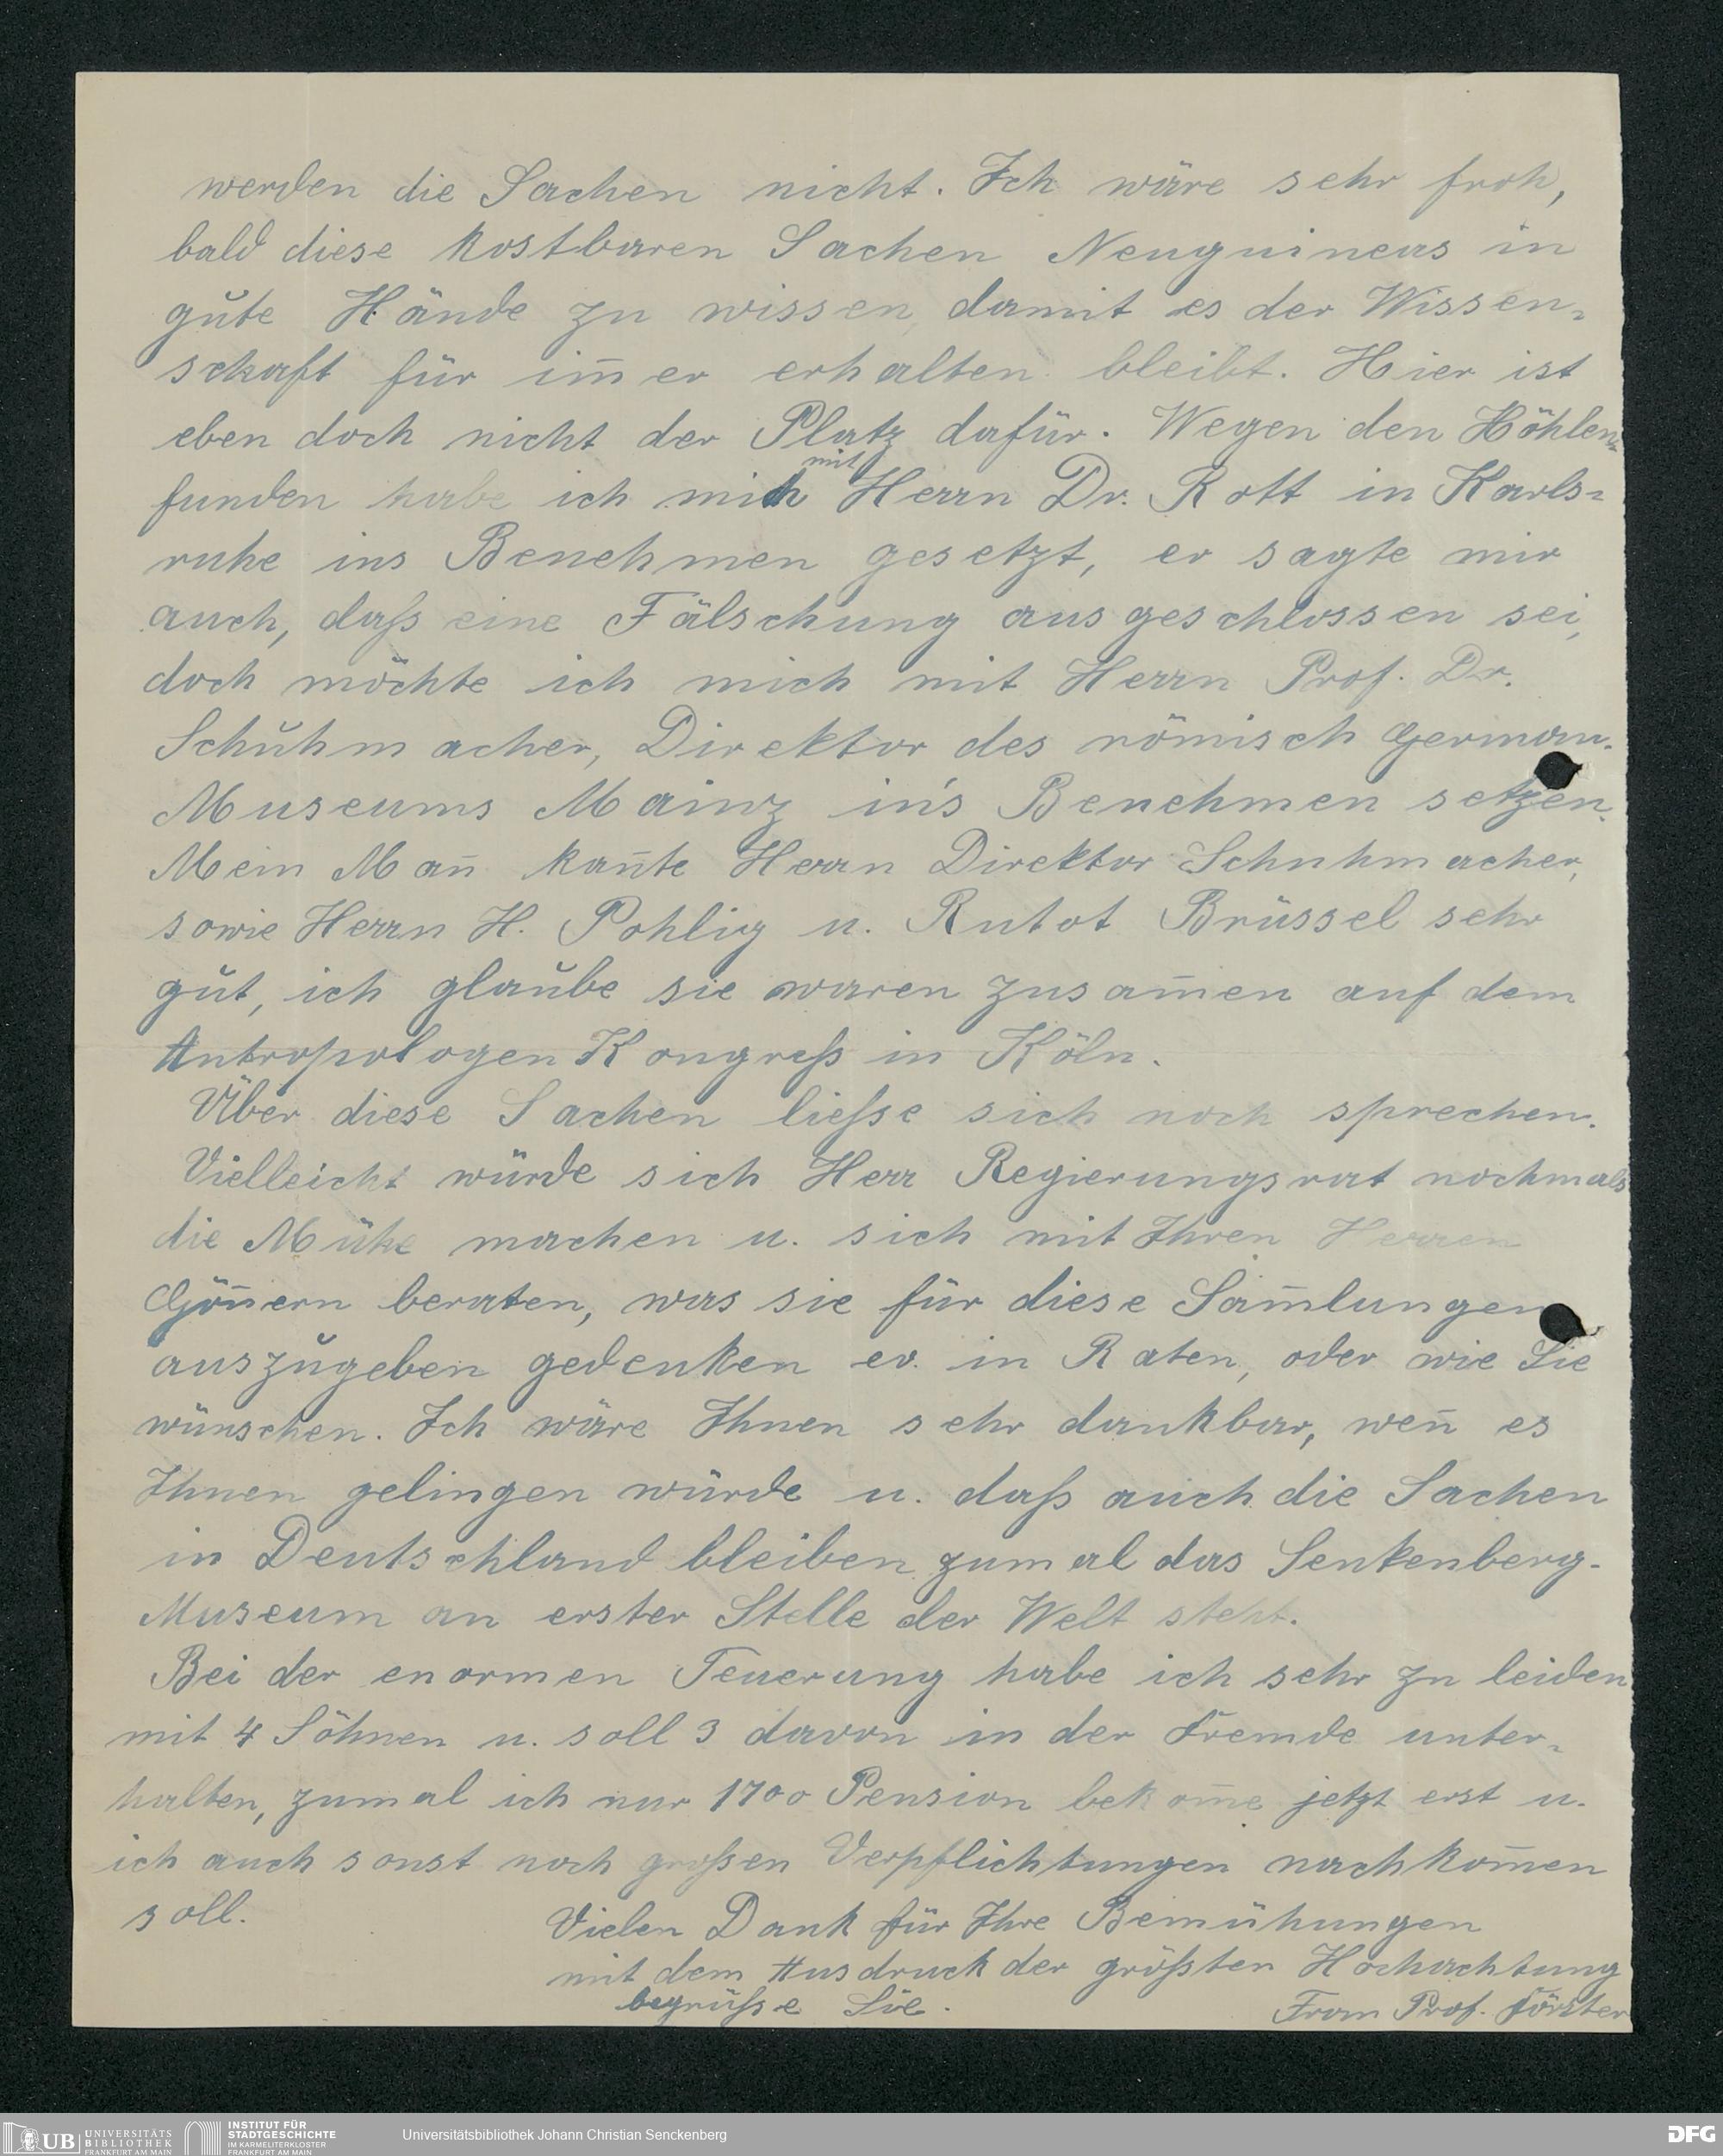 werden die Sachen nicht. Ich wäre sehr froh,
bald diese kostbaren Sachen Neuguineas in
gŭte Hände zu wissen, damit es der Wissen-
schaft für im̄er erhalten bleibt. Hier ist
eben doch nicht der Platz dafür. Wegen den Höhlen-
funden habe ich mich mit Herrn Dr. Rott in Karls-
ruhe ins Benehmen gesetzt, er sagte mir
auch, daß eine Fälschung ausgeschlossen sei,
doch möchte ich mich mit Herrn Prof. Dr.
Schŭhmacher, Direktor des römisch german.
Museums Mainz in's Benehmen setzen.
Mein Man̄ kan̄te Herrn Direktor Schuhmacher,
sowie Herrn H. Pohlig u. Rutot Brüssel sehr
gŭt, ich glaŭbe sie waren zusam̄en auf dem
Antropologen Kongreß in Köln.
Über diese Sachen ließe sich noch sprechen.
Vielleicht würde sich Herr Regierungsrat nochmals
die Mühe machen u. sich mit Ihren Herren
Gön̄ern beraten, was sie für diese Sam̄lungen
auszŭgeben gedenken ev. in Raten, oder wie Sie
wünschen. Ich wäre Ihnen sehr dankbar, wen̄ es
Ihnen gelingen würde u. daß auch die Sachen
in Deutschland bleiben zumal das Senkenberg-
Museum an erster Stelle der Welt steht.
Bei der enormen Teuerung habe ich sehr zu leiden
mit 4 Söhnen u. soll 3 davon in der Fremde unter-
halten, zumal ich nur 1700 Pension bekom̄e jetzt erst u.
ich auch sonst noch großen Verpflichtungen nachkom̄en
soll.
Vielen Dank für Ihre Bemühungen
mit dem Ausdruck der größten Hochachtung
begrüße Sie.
Frau Prof. Förster
UB UNIVERSITÄTS
BIBLIOTHEK
FRANKFURT AM MAIN
INSTITUT FÜR
STADTGESCHICHTE
IM KARMELITERKLOSTER
FRANKFURT AM MAIN
Universitätsbibliothek Johann Christian Senckenberg
DFG